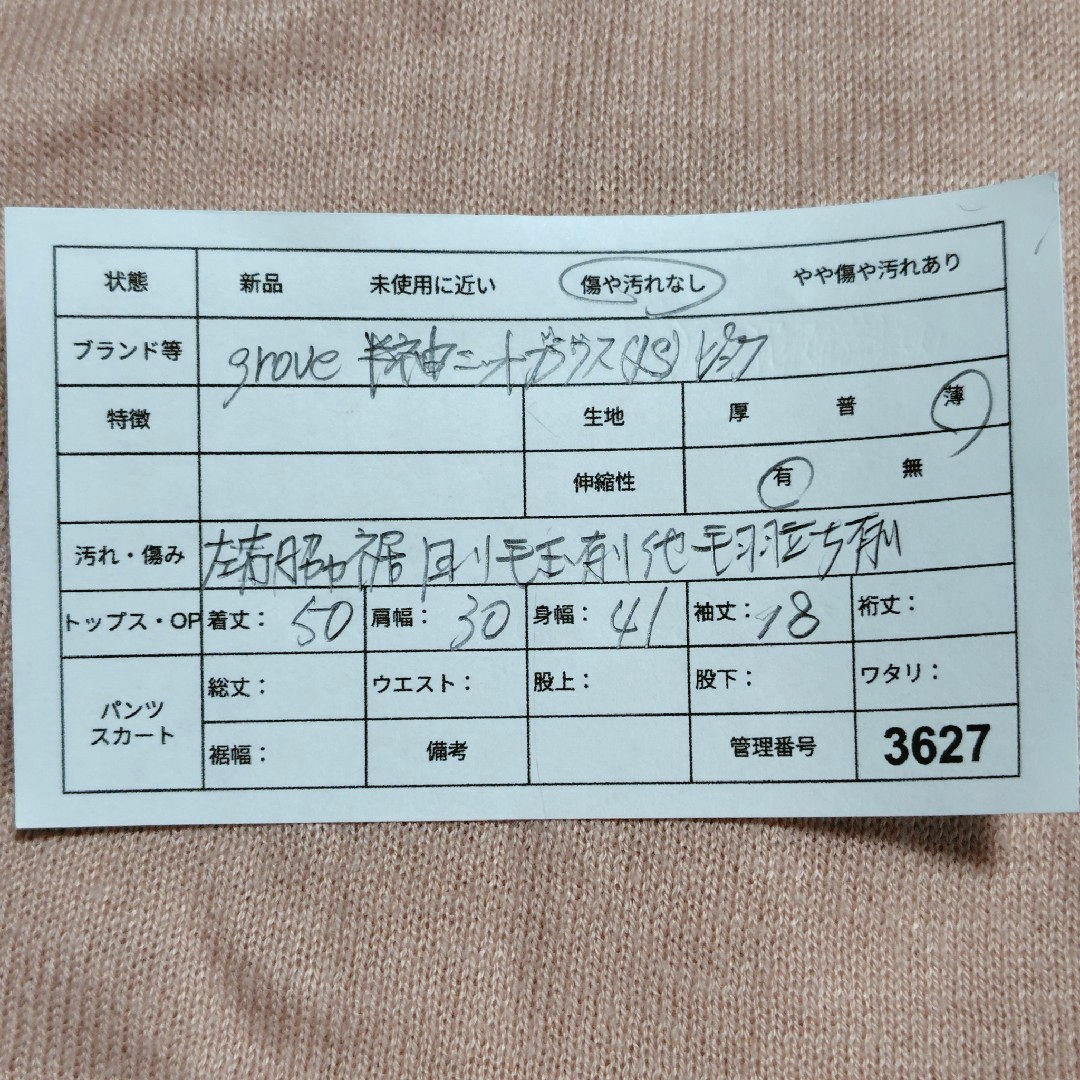 状態 新品 未使用に近い 傷や汚れなし やや傷や汚れあり
ブランド等 grove 半袖ニットブラウス(S) ピンク
特徴 生地 厚 普 薄
伸縮性 有 無
汚れ・傷み 左 脇 裾 毛玉有り 他毛羽立ち有り
トップス・OP 着丈: 50 肩幅: 30 身幅: 41 袖丈: 18 裄丈:
パンツ スカート 総丈: ウエスト: 股上: 股下: ワタリ:
裾幅: 備考 管理番号 3627